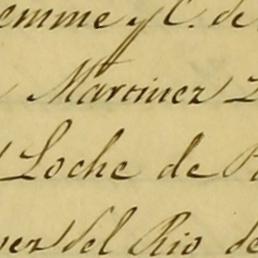 emme y C. de
Martinez
Loche de
del Rio de